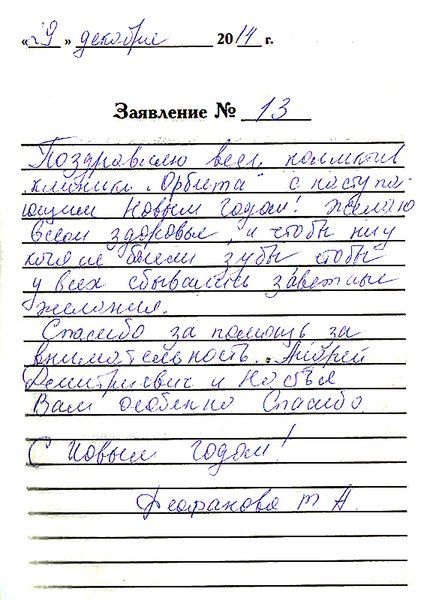 «29» декабря 2014 г.
Заявление № 13
Поздравляю весь коллектив
клиники "Орбита" с наступа-
ющим Новым годом! Желаю
всем здоровье, и чтобы ни у
кого не болели зубы чтобы
у всех сбывались заветные
желания.
Спасибо за помощь за
внимательность. Андрей
Дмитриевич и Настья
Вам особенно Спасибо
С Новым годом!
Феофанова Т А.